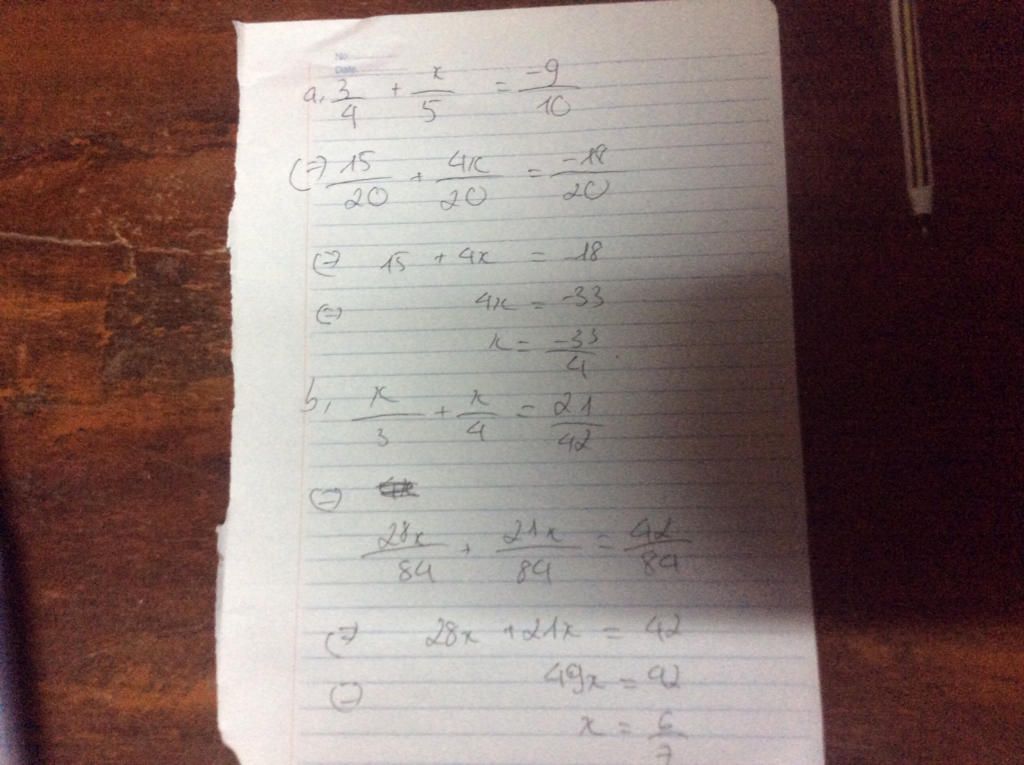 No
Date
a, 3/4 + x/5 = -9/10
(=) 15/20 + 4x/20 = -18/20
(=) 15 + 4x = -18
(=) 4x = -33
x = -33/4
b, x/3 + x/4 = 21/42
(=)
28x/84 + 21x/84 = 42/84
(=) 28x + 21x = 42
(=) 49x = 42
x = 6/7